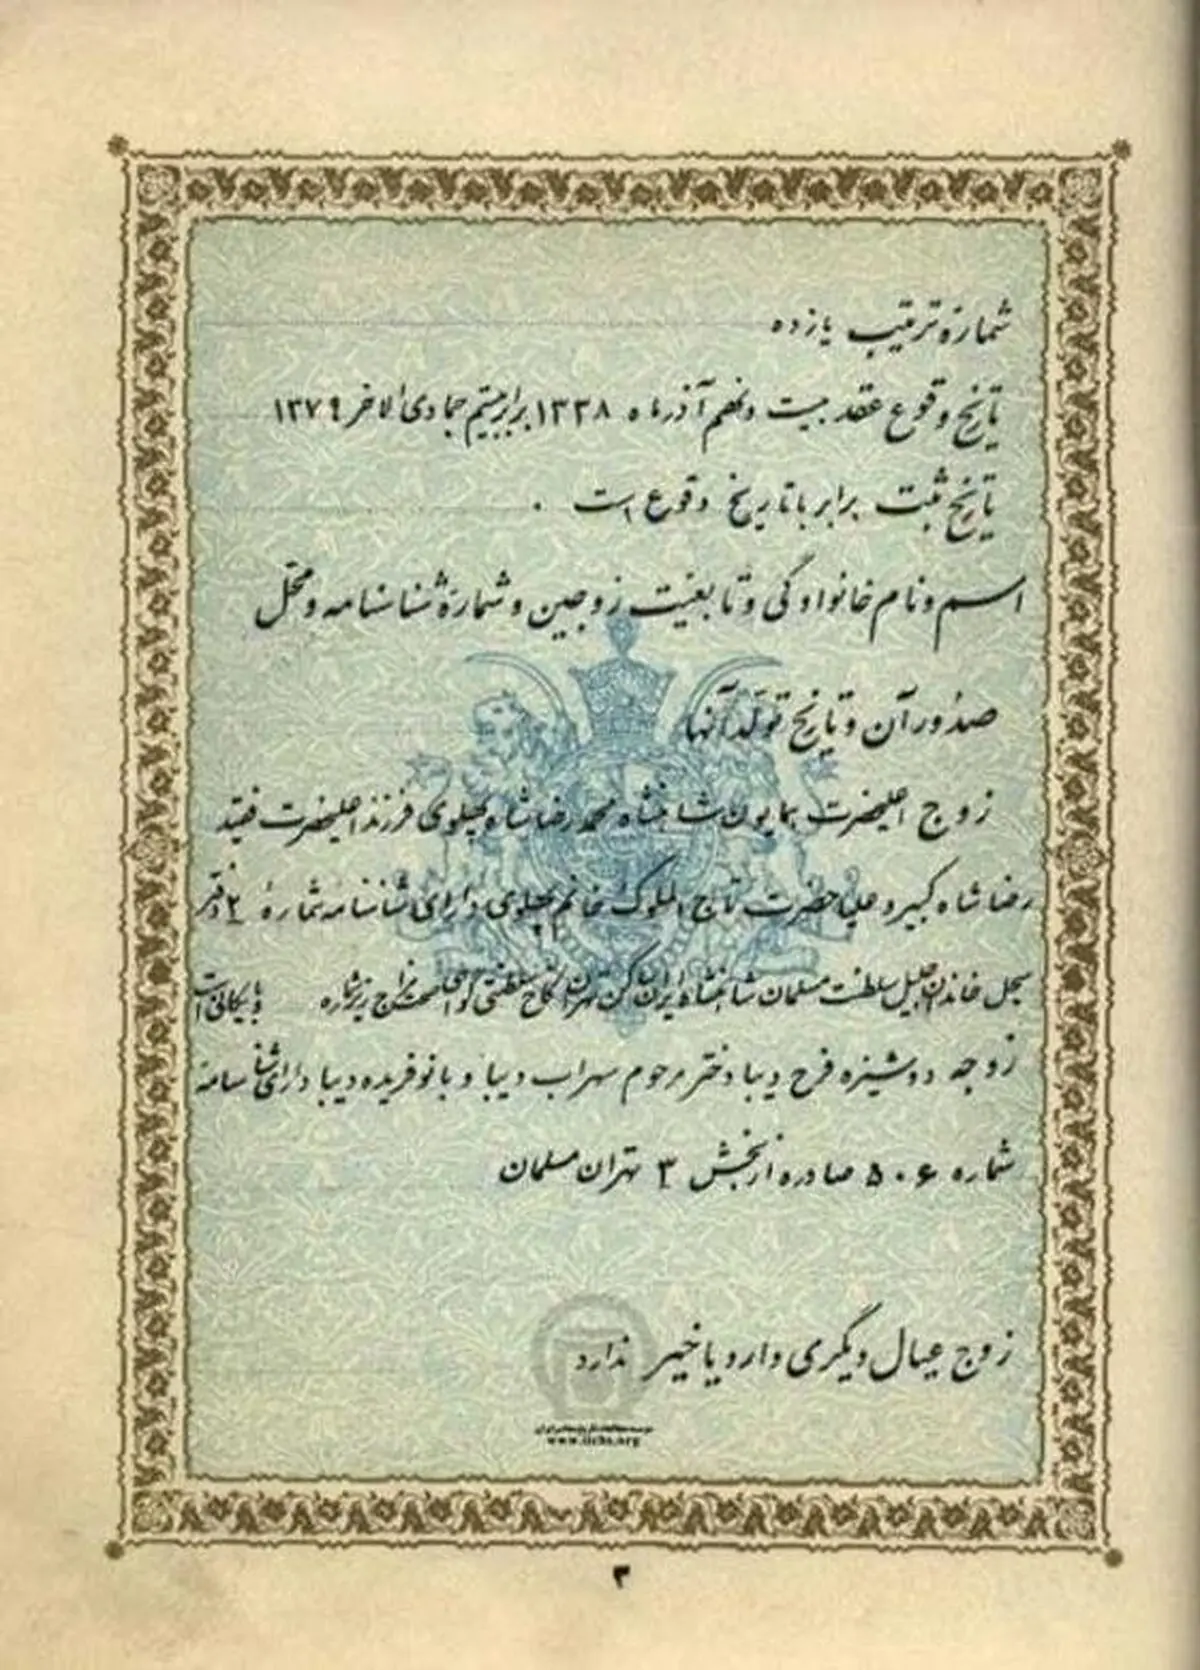 شمارهٔ ترتیب یازده
تاریخ وقوع عقد بیست و نهم آذرماه ۱۳۳۸ برابر بیستم جمادی الاخر ۱۳۷۹
تاریخ ثبت برابر با تاریخ وقوع است .
اسم و نام خانوادگی و تابعیت زوجین و شمارهٔ شناسنامه و محل
صدور آن و تاریخ تولد آنها
زوج اعلیحضرت همایون شاهنشاه محمد رضا شاه پهلوی فرزند اعلیحضرت فقید
رضا شاه کبیر و علیاحضرت تاج الملوک خانم پهلوی دارای شناسنامه شمارهٔ ۲ دفتر
سجل خاندان جلیل سلطنت مسلمان شاهنشاه ایران ساکن تهران کاخ سلطنتی گواهی صحت مزاج
زوجه دوشیزه فرح دیبا دختر مرحوم سهراب دیبا و بانو فریده دیبا دارای شناسنامه
شماره ۵۰۶ صادره از بخش ۳ تهران مسلمان
زوج عیال دیگری دارد یا خیر ندارد
موسسه مطالعات تاریخ معاصر ایران
www.iichs.org
۳